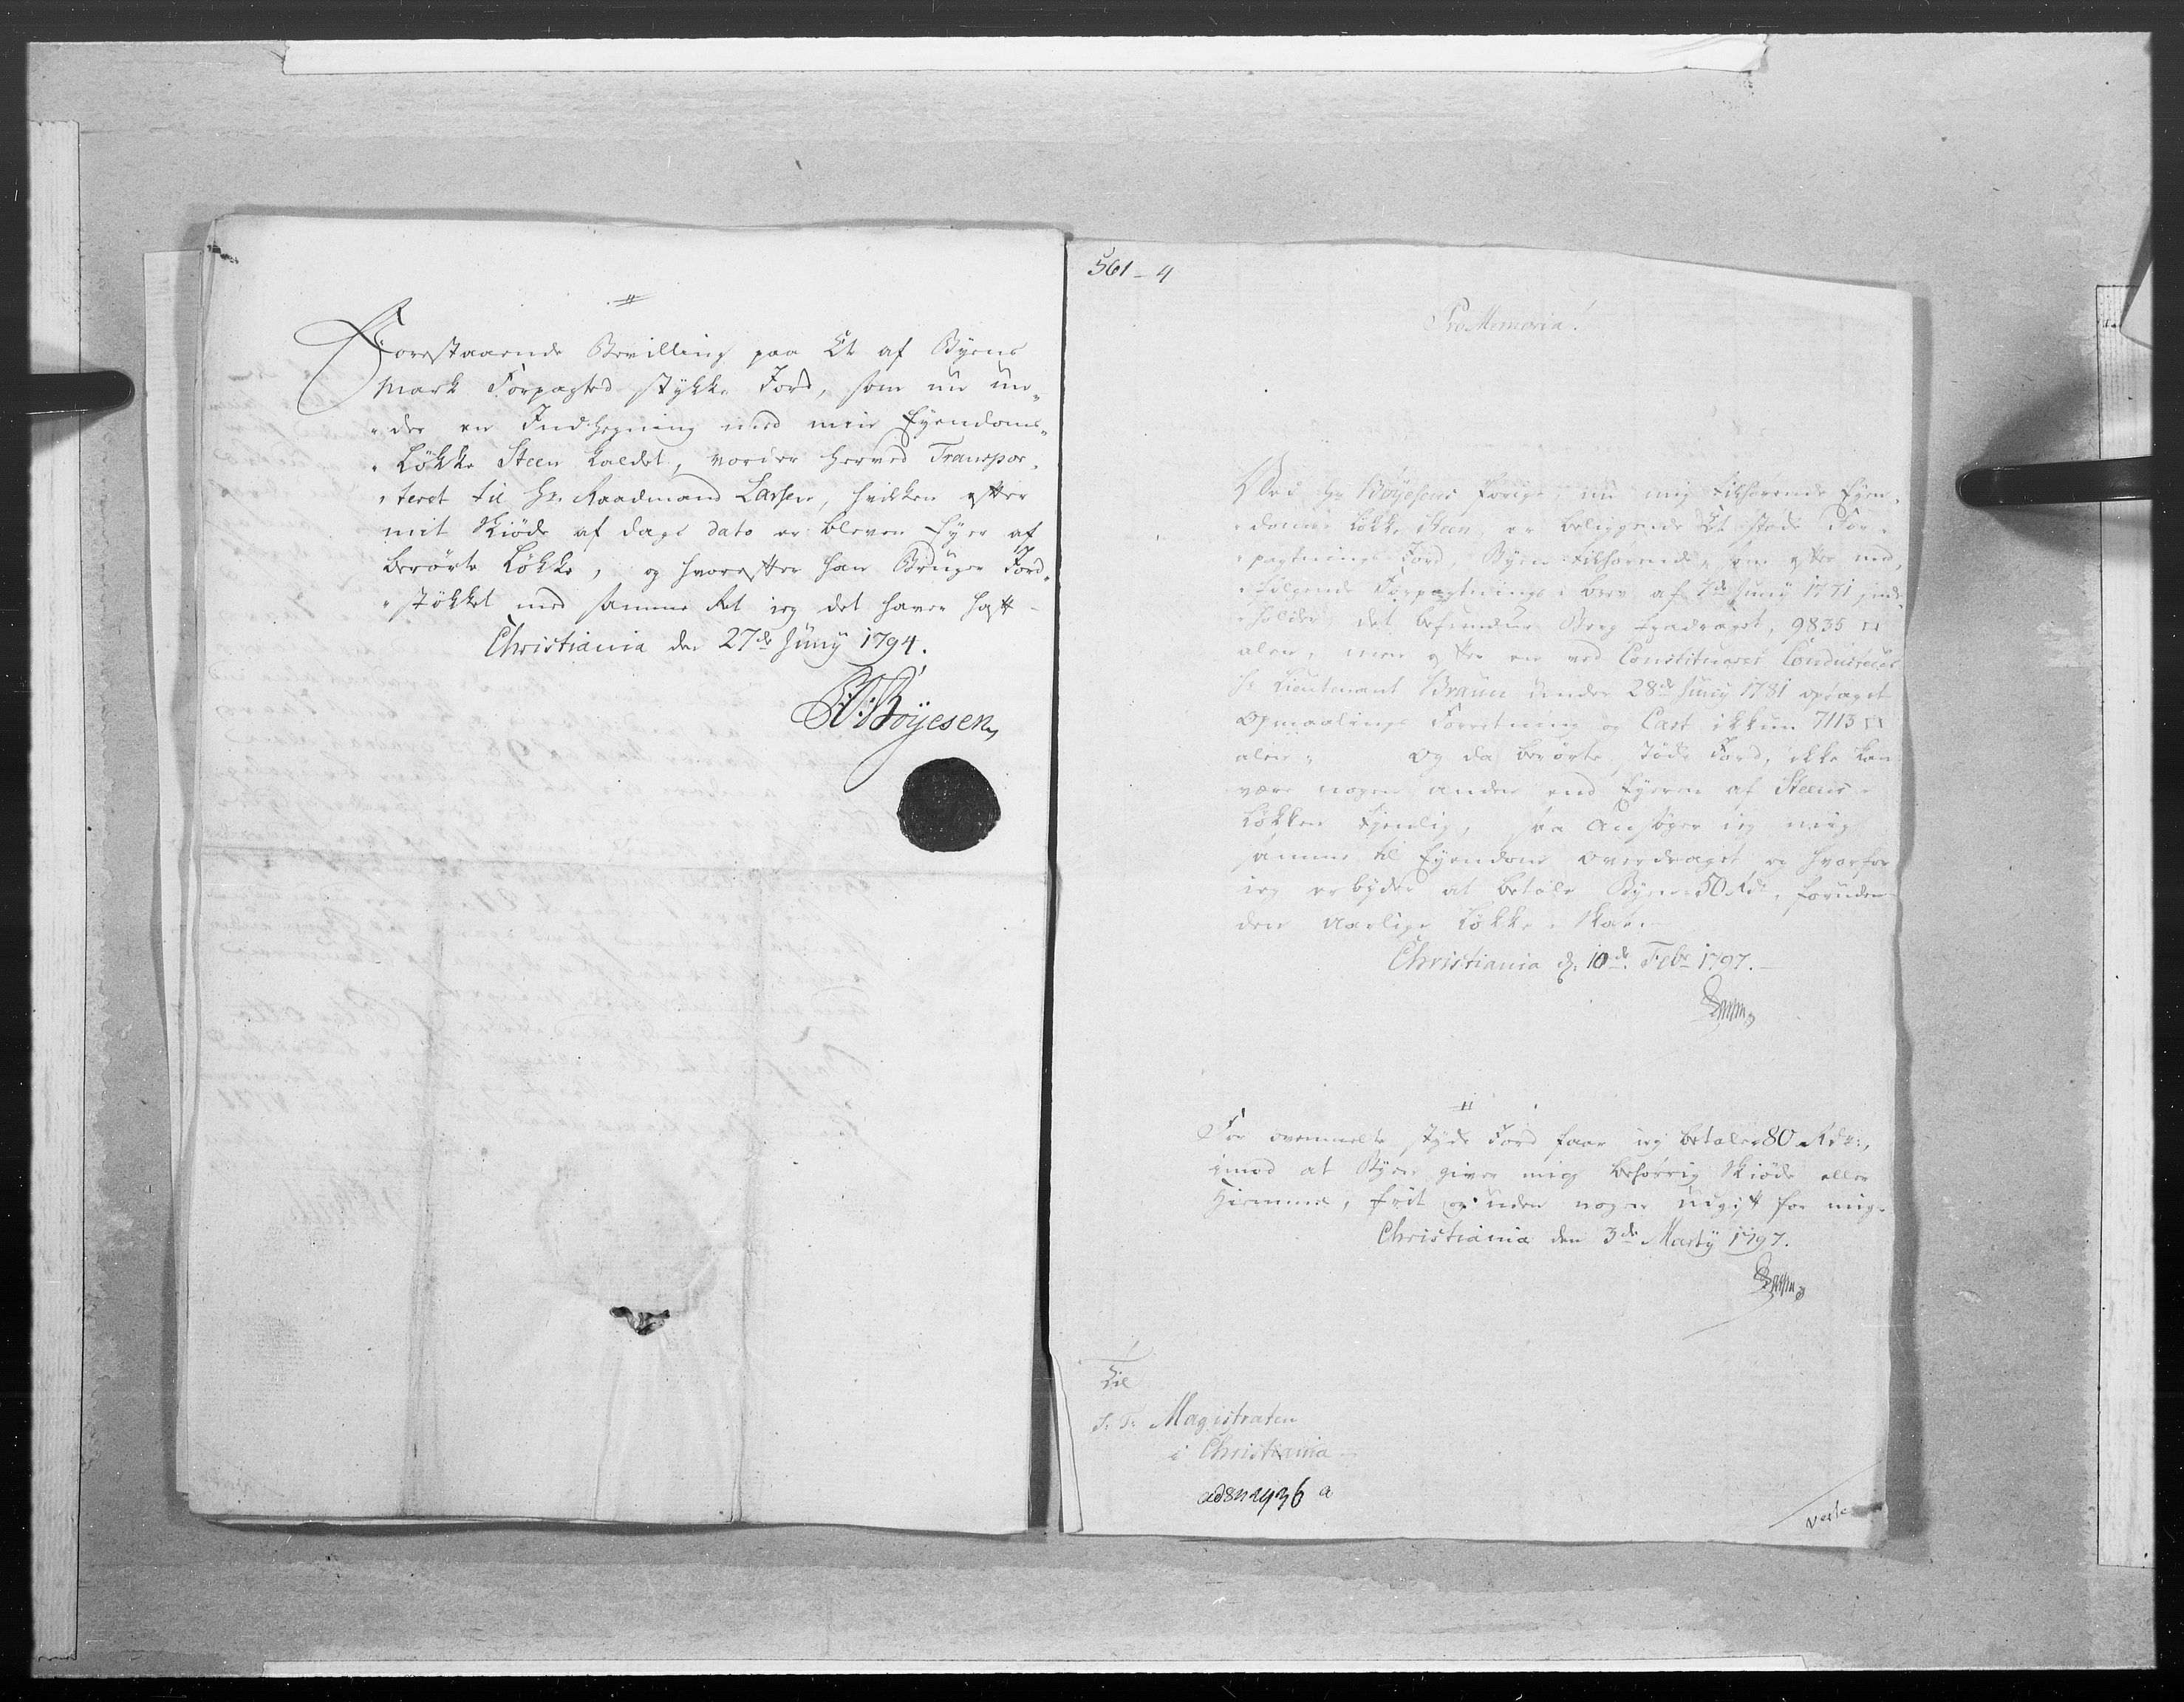 #
Forestaaende Bevilling paa Et af Byens
Mark Forpagted stykke Jord, som nu un„
„der en Indhegning med min Eyendoms„
„Løkke Steen kaldet, vorder herved Transpor„
„teret til Hr. Raadmand Larsen, hvilken efter
mit Skiøde af dags dato er bleven Eyer af
berørte Løkke, og hvorefter han Bruger Jord„
„støkket med samme Ret ieg det haver haft –
Christiania den 27de Juny 1794.
Bøyesen
561 – 4
Pro Memoria!
Ved Hr Bøyesens forige nu mig tilhørende Eyen„
„doms Løkke Steen er beliggende Et støde For„
„pagtnings Jord Byen tilhørende, som efter ned„
„følgende Forpagtnings brev af 7de Juny 1771 inde„
„holder det befindes qvadraret, 9835 □
alen, men efter en ved Constitueret Conducteur
Hr Lieutenant Braun under 28de Juny 1781 optaget
Opmaalings Forretning og Cart ikkun 7113 □
alen, og da berørte støde Jord, ikke kan
være nogen anden end Eyeren af Steens„
Løkken tjenlig, saa ansøger ieg mig
samme til Eyendom overdraget og hvorfor
ieg erbyder at betale Byen 50 Rdr, foruden
den Aarlige Løkke„Skat.–
Christiania d. 10de Febr 1797.–
#
For ovenmelte støde Jord faar ieg betale 80 Rdr:,
imod at Byen giver mig behørig Skiøde eller
Hiemmel, frit og uden nogen Udgift for mig.
Christiania den 3de Marty 1797.
Til
S. T. Magistraten
i Christiania –
ad 2436 a